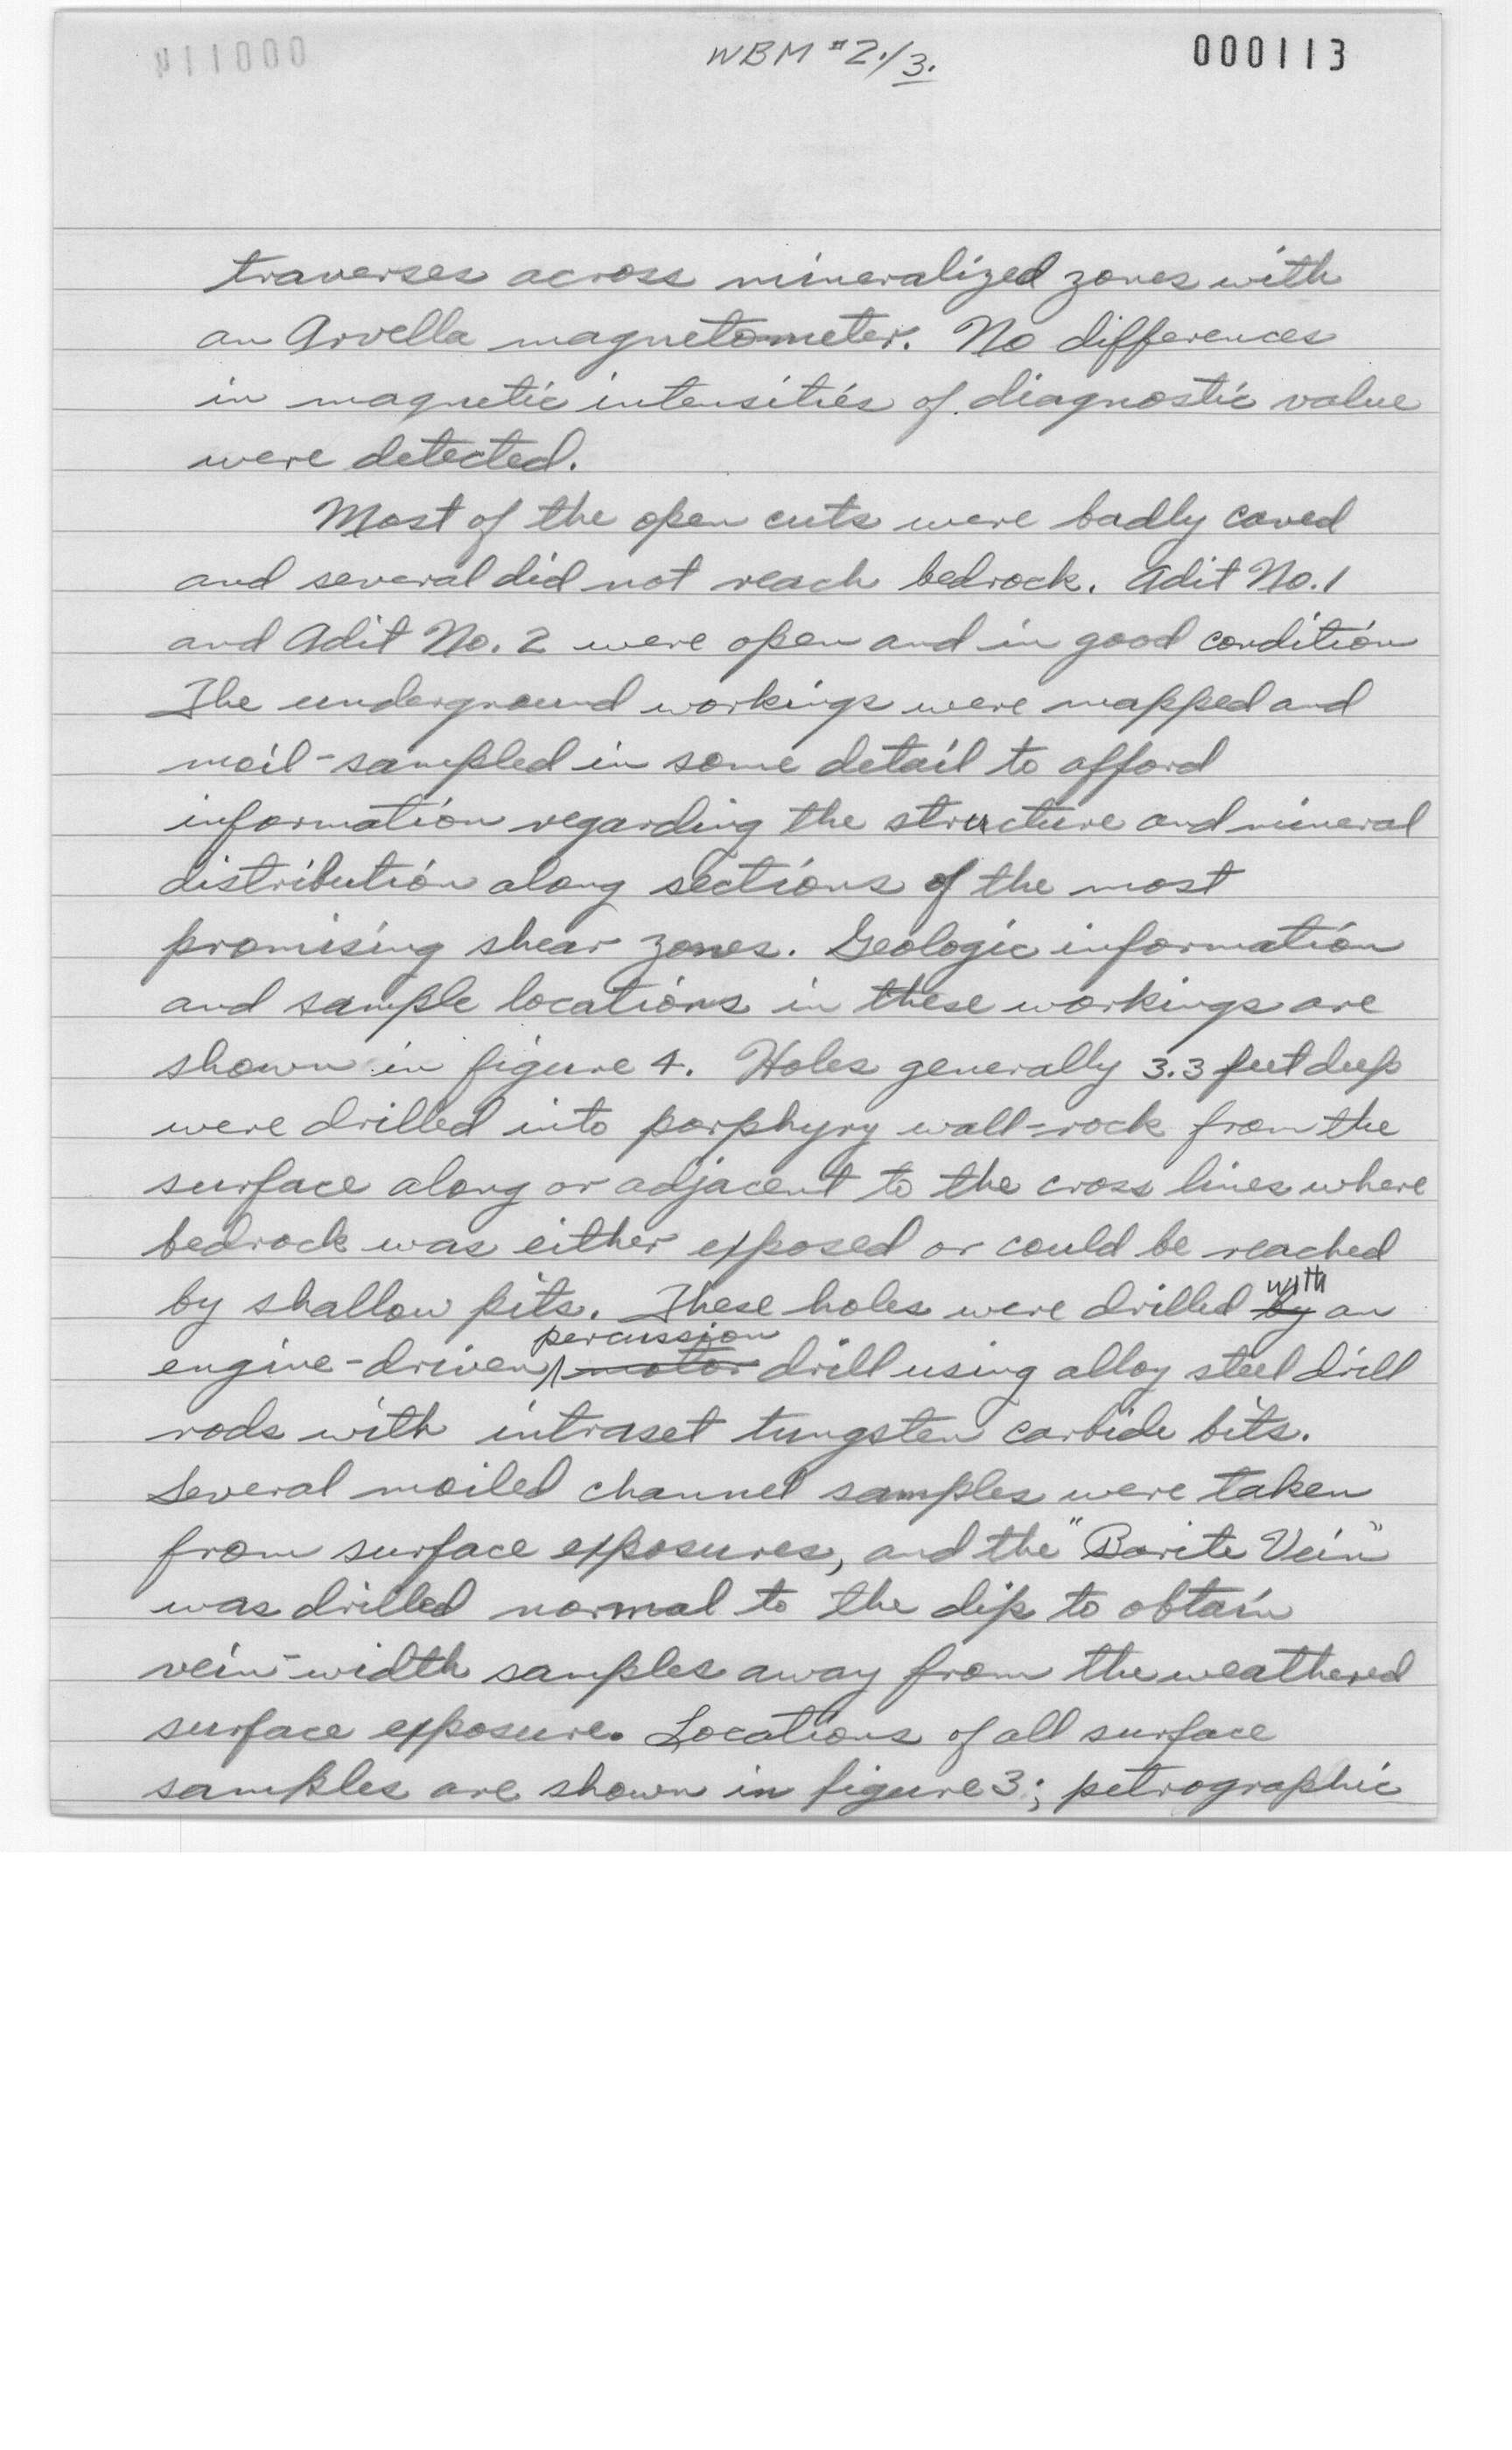 WBM #2./3.
000113
traverses across mineralized zones with
an Arvella magnetometer. No differences
in magnetic intensities of diagnostic value
were detected.
Most of the open cuts were badly caved
and several did not reach bedrock. Adit No. 1
and Adit No. 2 were open and in good condition
The underground workings were mapped and
moil-sampled in some detail to afford
information regarding the structure and mineral
distribution along sections of the most
promising shear zones. Geologic information
and sample locations in these workings are
shown in figure 4. Holes generally 3.3 feet deep
were drilled into porphyry wall-rock from the
surface along or adjacent to the cross lines where
bedrock was either exposed or could be reached
by shallow pits. These holes were drilled by with an
engine-driven percussion motor drill using alloy steel drill
rods with intraset tungsten carbide bits.
Several moiled channel samples were taken
from surface exposures, and the "Barite Vein"
was drilled normal to the dip to obtain
vein-width samples away from the weathered
surface exposure. Locations of all surface
samples are shown in figure 3; petrographic